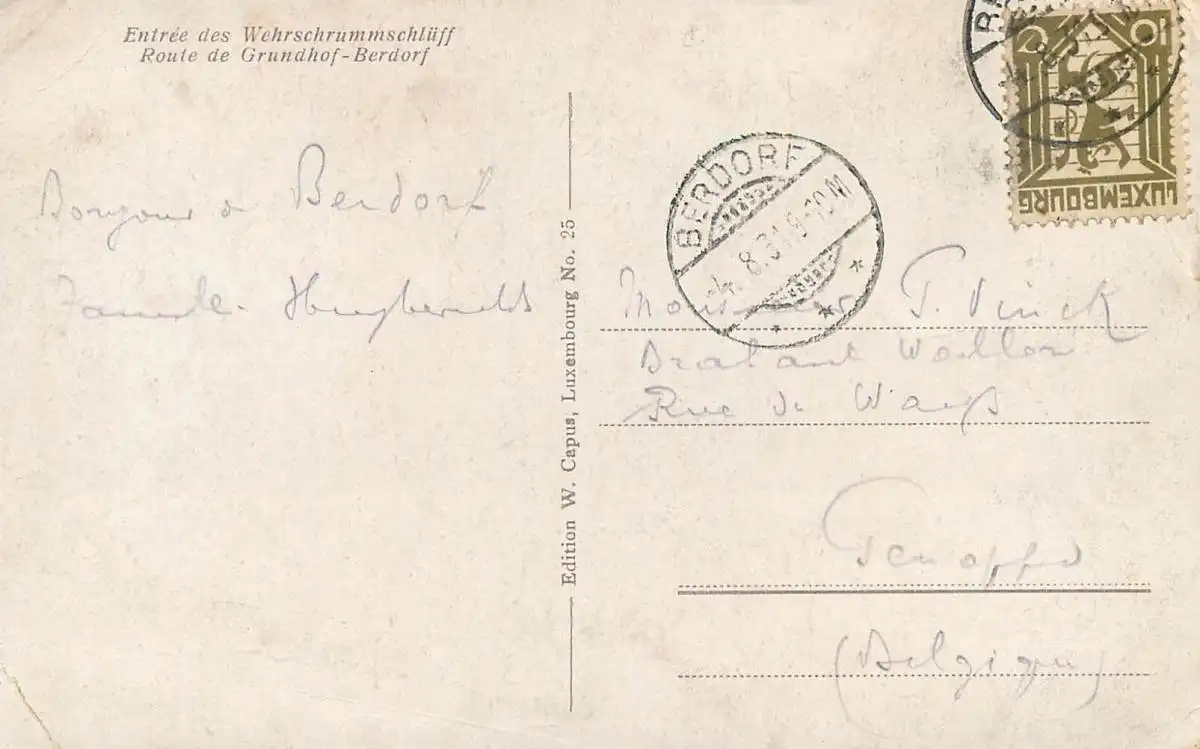 Entrée des Wehrschrummschlüff
Route de Grundhof-Berdorf
Bonjour de Berdorf
Famille Huyberechts
Edition W. Capus, Luxembourg No. 25
BERDORF
4.8.31.9-10M
LUXEMBOURG
Monsieur P. Vinck
Brabant Wallon
Rue de Ways
Genappe
(Belgique)